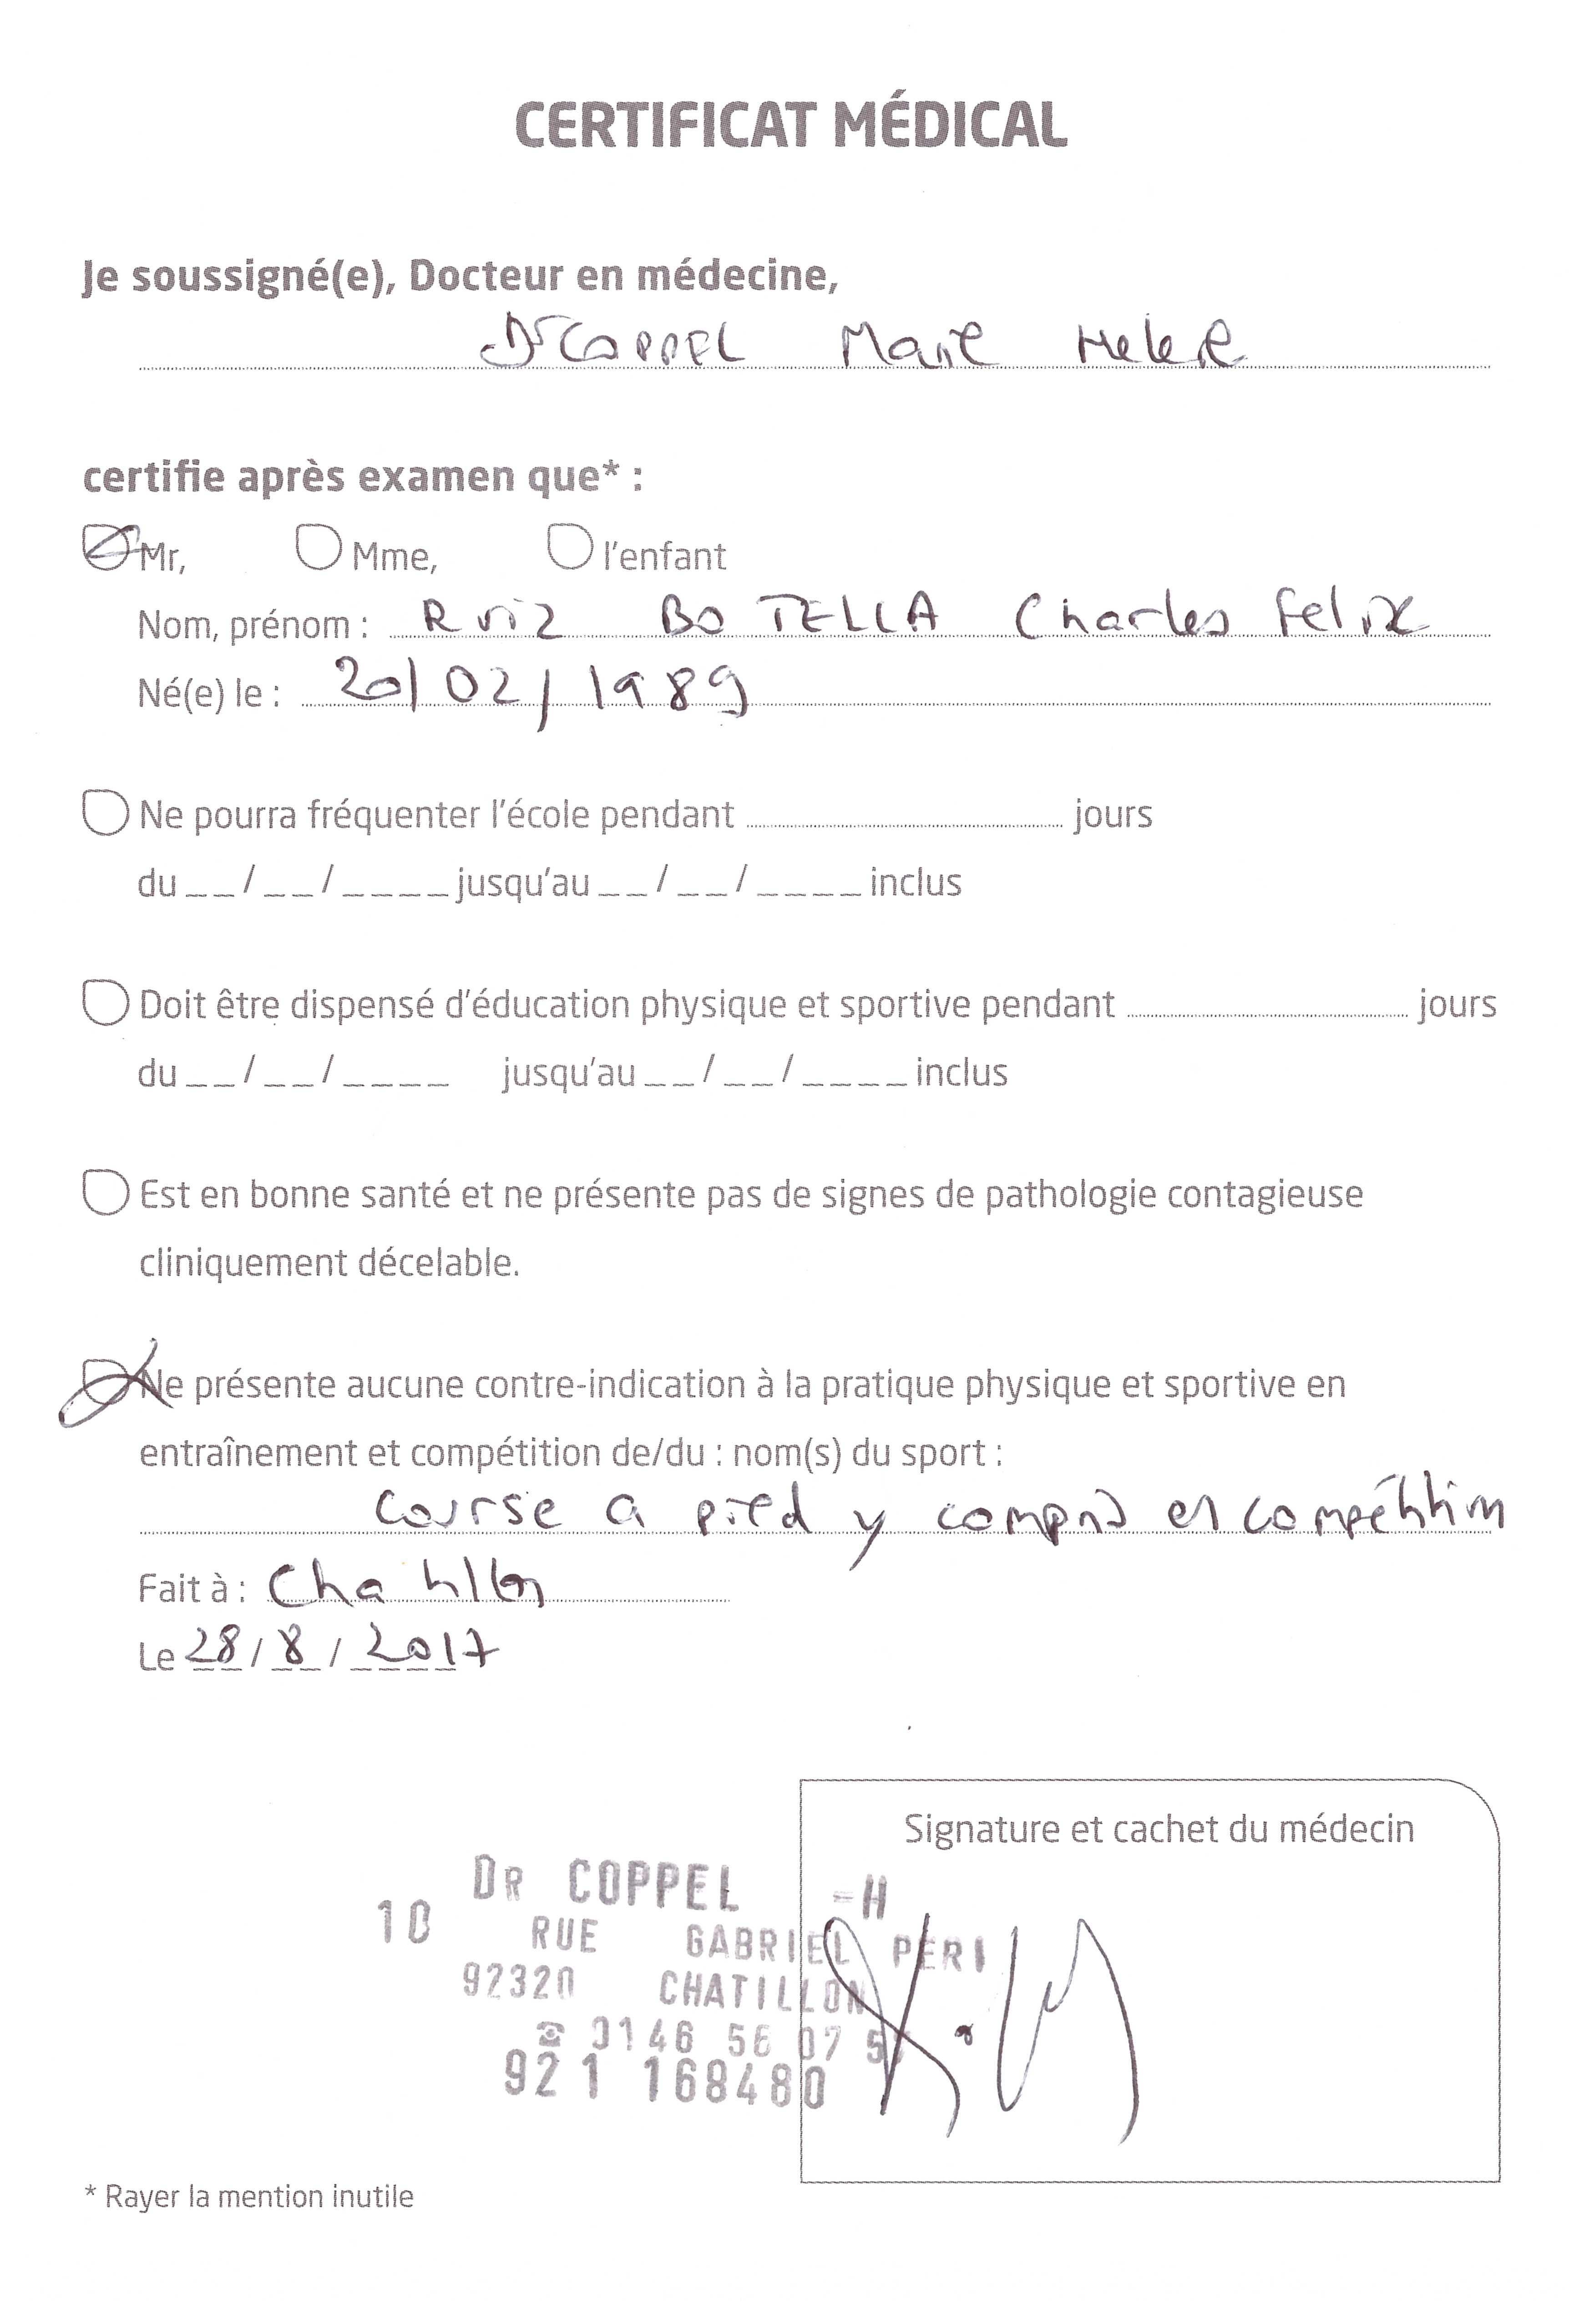 CERTIFICAT MÉDICAL
Je soussigné(e), Docteur en médecine,
Dr COPPEL Marie Helene
certifie après examen que* :
Mr, Mme, l'enfant
Nom, prénom : Ruiz BOTELLA Charles Felix
Né(e) le : 20/02/1989
Ne pourra fréquenter l'école pendant jours
du __/__/____ jusqu'au __/__/____ inclus
Doit être dispensé d'éducation physique et sportive pendant jours
du __/__/____ jusqu'au __/__/____ inclus
Est en bonne santé et ne présente pas de signes de pathologie contagieuse
cliniquement décelable.
Ne présente aucune contre-indication à la pratique physique et sportive en
entraînement et compétition de/du : nom(s) du sport :
Course a pied y compris en compétition
Fait à : Chatillon
Le 28/8/2017
Signature et cachet du médecin
DR COPPEL =H
10 RUE GABRIEL PERI
92320 CHATILLON
☎ 0146 56 07
921 168480
* Rayer la mention inutile